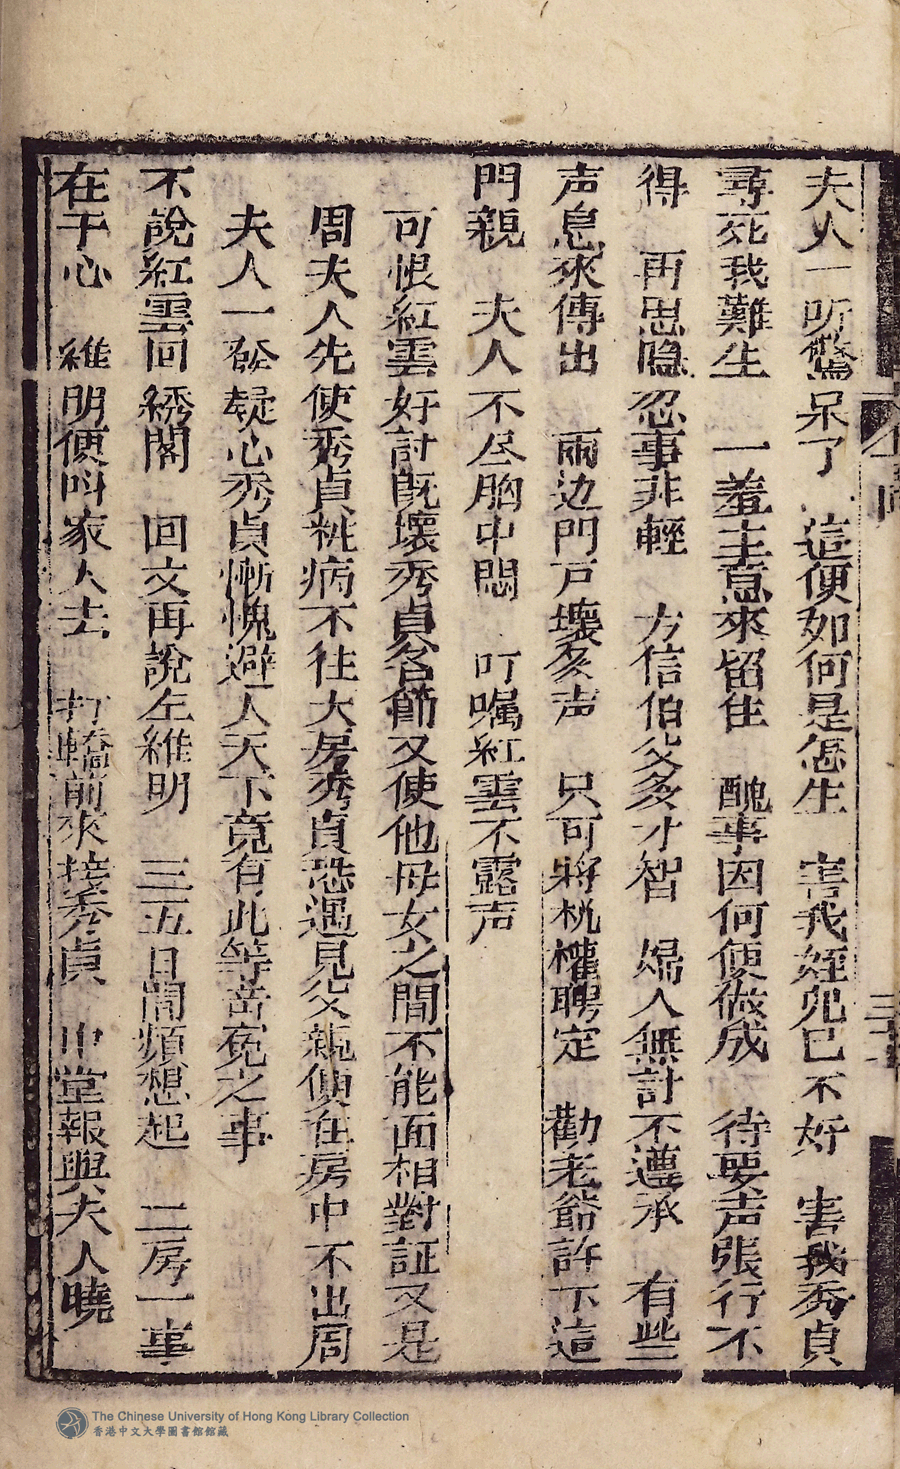 夫人一听驚呆了　這便如何是怎生　害我姪児已不好　害我秀貞
尋死我難生　一羞主意來留住　醜事因何便做成　待要声張行不
得　再思隐忍事非輕　方信伯父多才智　婦人無計不遵承　有些
声息來傳出　兩边門戸壞家声　只可將桃權聘定　勸老爺許下這
門親　夫人不尽胸中悶　叮嘱紅雲不露声
可恨紅雲好討既壞秀貞名節又使他母女之間不能面相對証又是
周夫人先使秀貞祧病不往大房秀貞恐遇見父親便在房中不出周
夫人一發疑心秀貞慚愧避人天下竟有此等苦寃之事
不說紅雲回綉閣　回文再說左維明　三五日間頻想起　二房一事
在于心　維明便呌家人去　打轎前來接秀貞　中堂報與夫人曉
三十
The Chinese University of Hong Kong Library Collection
香港中文大學圖書館館藏